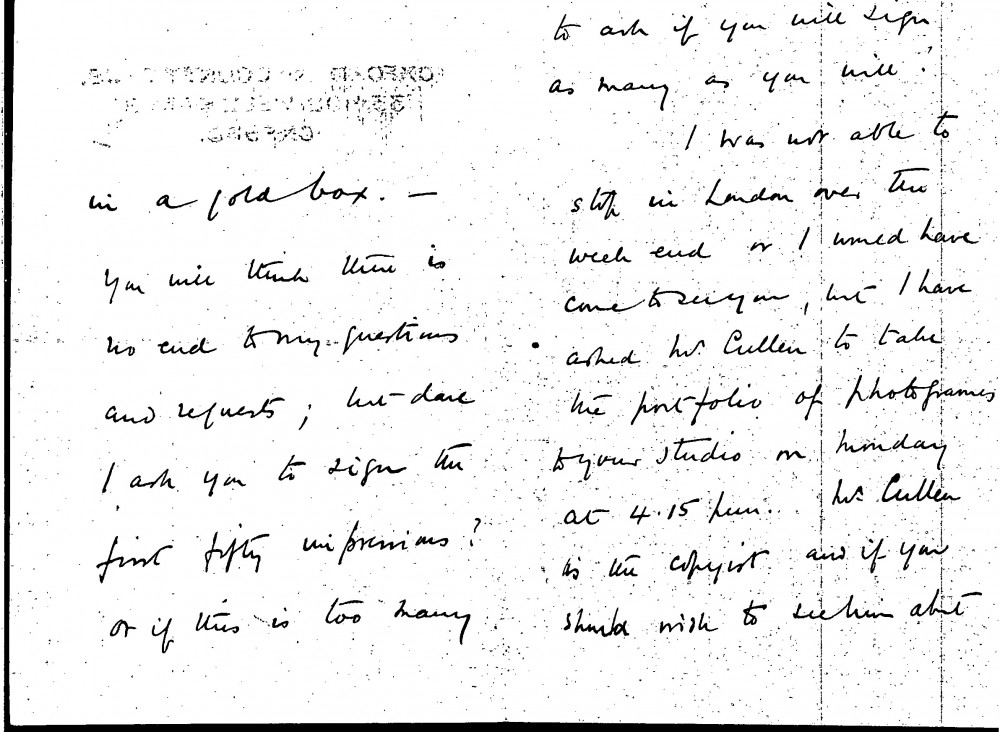 in a gold box. —
You will think there is
no end to my questions
and requests; but dare
I ask you to sign the
first fifty impressions?
or if this is too many
to ask if you will sign
as many as you will?
I was not able to
stop in London over the
week end or I would have
come to see you, but I have
asked Mr. Cullen to take
the portfolio of photogravures
to your studio on Monday
at 4.15 p.m. Mr. Cullen
is the copyist and if you
should wish to see him about